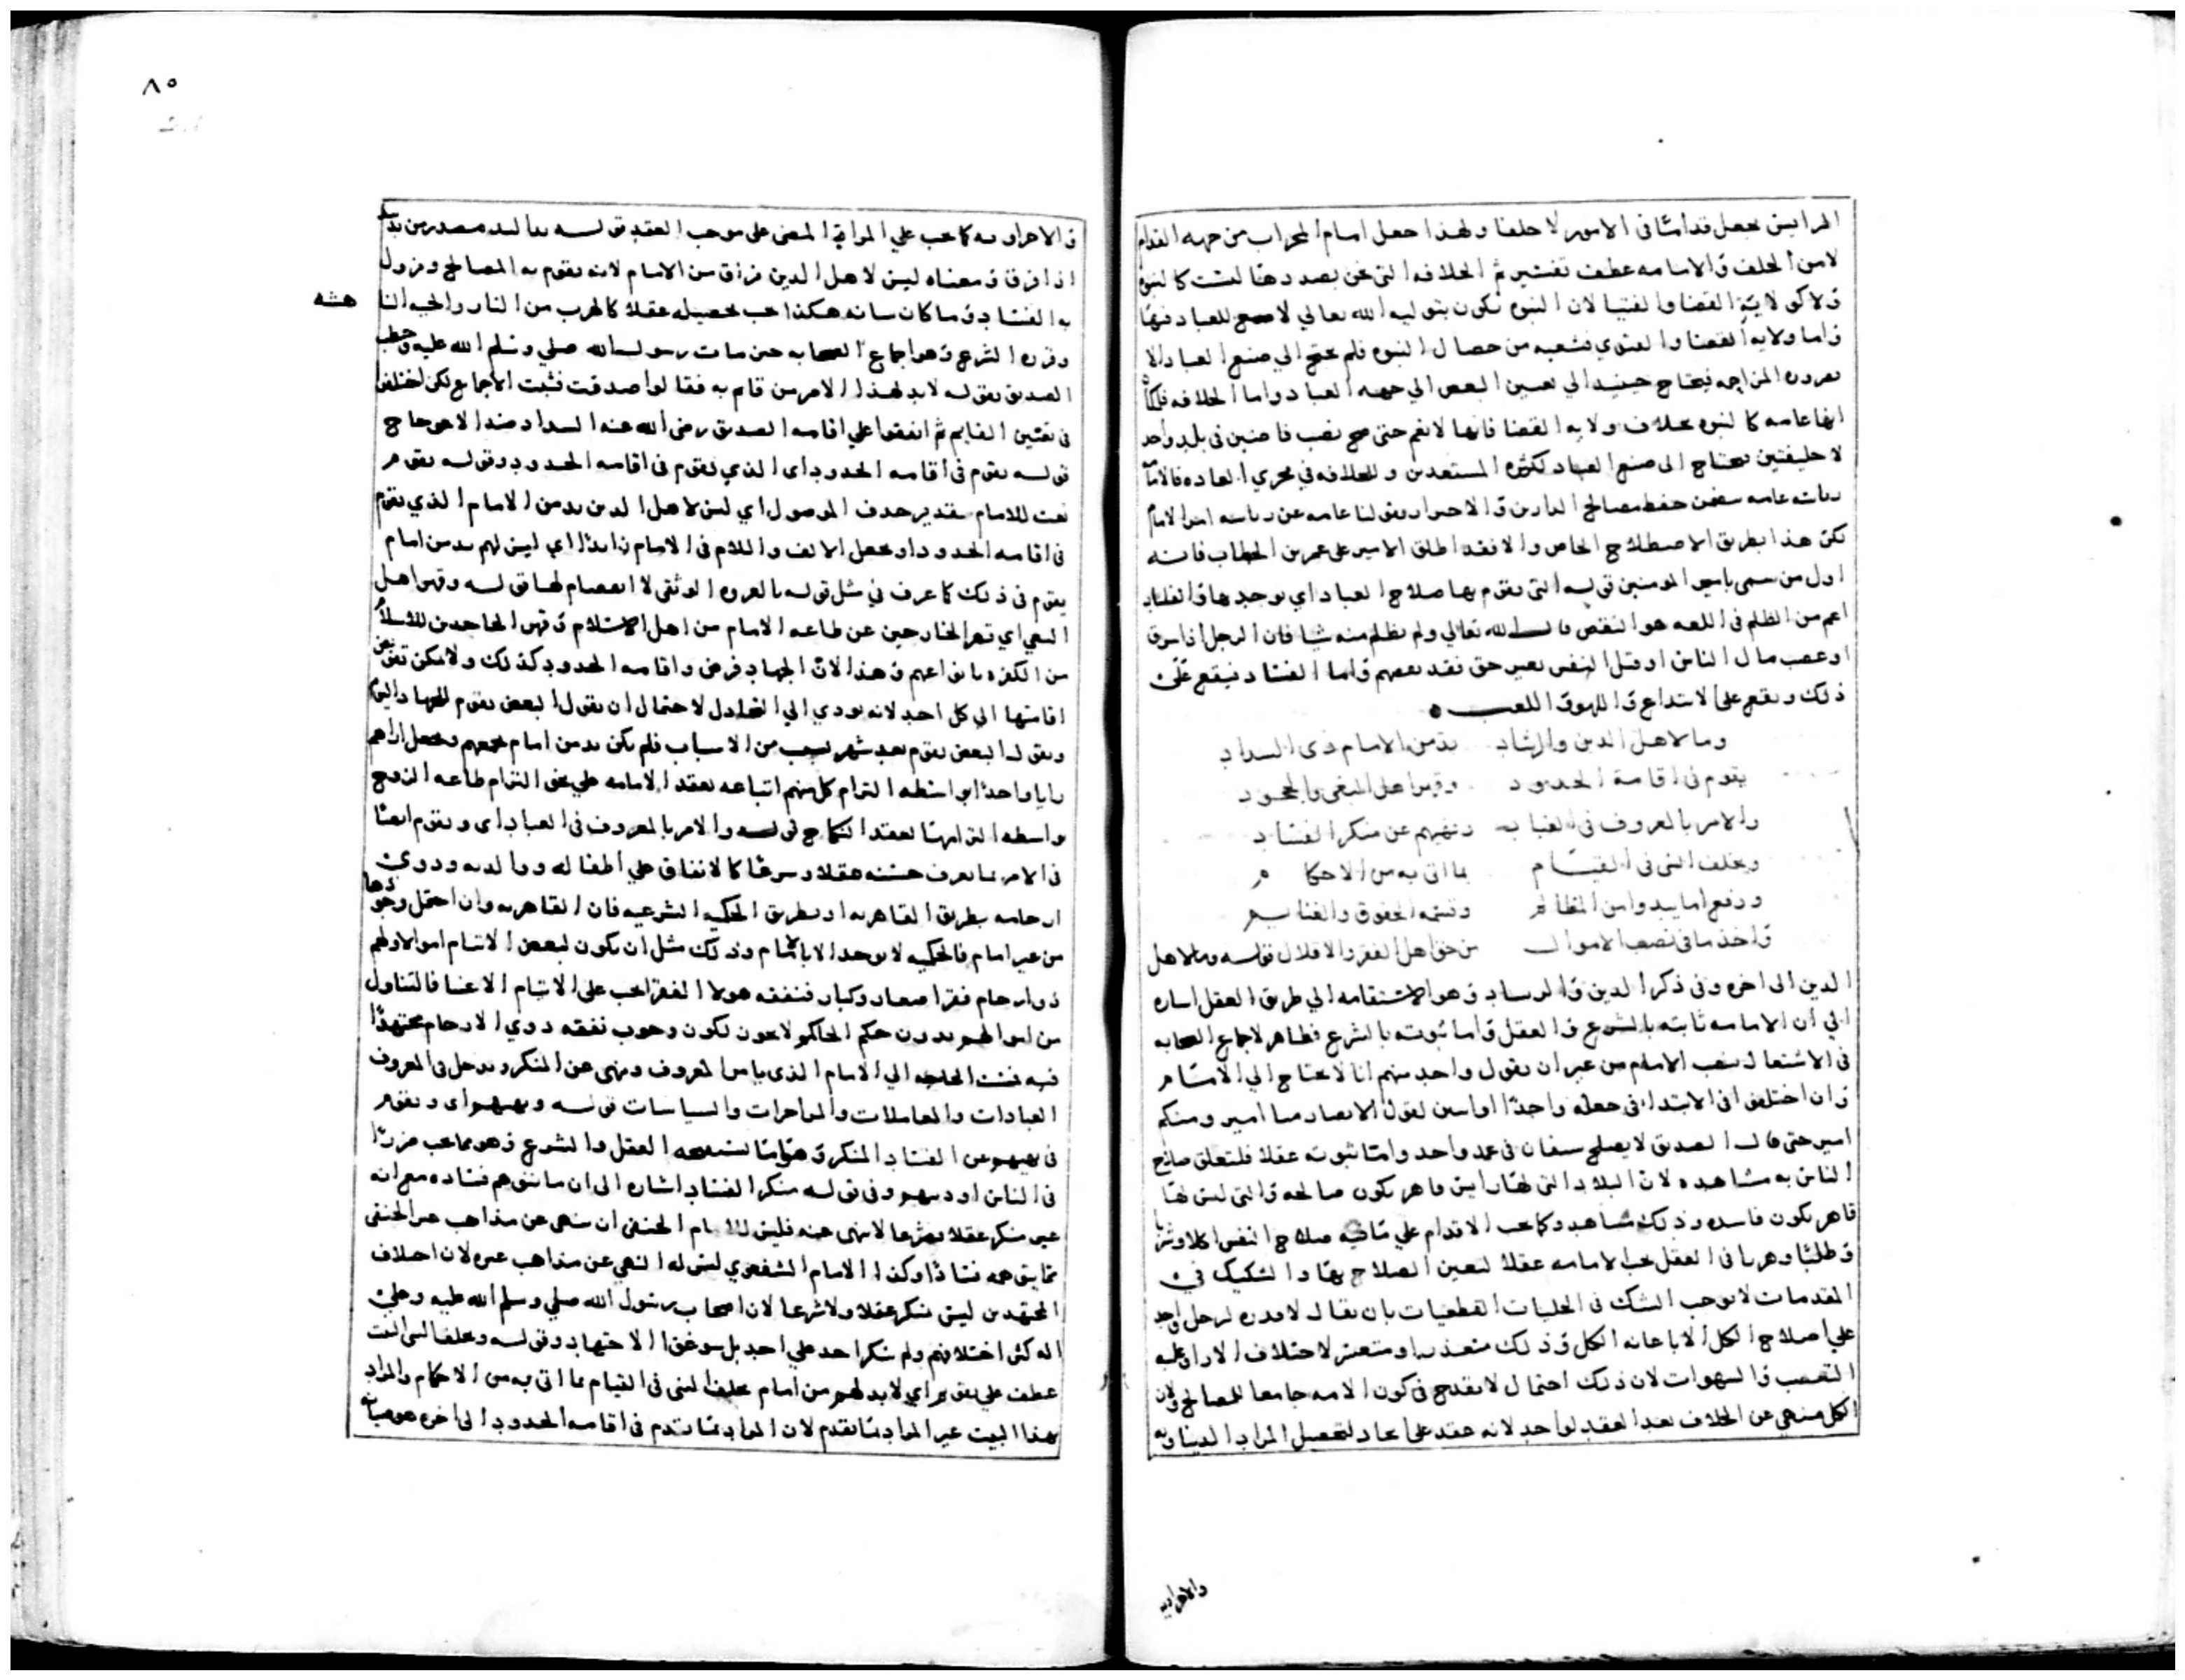 المرايس يجعل قداما في الامور لا خلفا ولهذا جعل امام المحراب من جهه القدام
لا من الخلف والامامه عطف تفسير ثم الخلافه التي نحن بصددها ليست كالنبوه
ولا كولاية القضا والفتيا لان النبوه تكون بتوليه الله تعالي لا صنع للعباد فيها
واما ولايه القضا والفتوي فشعبه من خصال النبوه فلم يحتج الي صنع العباد الا
المزاحمه فيحتاج حينيذ الي تعيين البعض الي جهه العباد واما الخلافه
انها عامه كالنبوه بخلاف ولايه القضا فانها لا تعم حتي صح نصب قاضيين في بلد واحد
لا خليفتين يحتاج الي صنع العباد لكثره المستعدين وللخلافه في مجري العاده فالامامه
رياسه عامه تتضمن حفظ مصالح الدارين والاحتراز بقولنا عامه عن رياسه امرا الامام
لكن هذا بطريق الاصطلاح الخاص والا فقد اطلق الامير علي عمر بن الخطاب فانه
اول من سمي بامير المومنين قوله التي يقوم بها صلاح العباد اي يوجد بها والفساد
اعم من الظلم في اللغه هو النقص قال الله تعالي ولم تظلم منه شيا فان الرجل اذا سرق
او غصب مال الناس او قتل النفس بغير حق فقد نقصهم واما الفساد فيقع علي
ذلك ويقع علي الابتداع واللهو واللعب
وما لاهل الدين والرشاد بد من الامام ذي السداد
يقوم في اقامة الحدود وقهر اهل البغي والجحود
والامر بالمعروف في العباد ونهيهم عن منكر الفساد
ويخلف النبي في القيام بما اتي به من الاحكام
ودفع المظالم وقسمه الحقوق والغنايم
واخذ ما في نصب الاموال من حق اهل الفقر والاقلال قوله وما لاهل
الدين الي اخره وفي ذكر الدين والرشاد وهو الاستقامه الي طريق العقل اشاره
الي ان الامامه ثابته بالشرع والعقل واما ثبوته بالشرع فظاهر لاجماع الصحابه
في الاشتغال بنصب الامام من غير ان يقول واحد منهم انا لا نحتاج الي الامام
وان اختلفوا في الابتداء في جعله واحدا او اثنين لقول الانصار منا امير ومنكم
امير حتي قال الصديق لا يصلح سيفان في غمد واحد واما ثبوته عقلا فلتعلق صلاح
الناس به مشاهده لان البلاد التي لها رايس قاهر يكون صالحه والتي ليس لها
قاهر يكون فاسده وذلك مشاهد وكما يجب الاقدام علي ما فيه صلاح النفس اكلا وشربا
وطلبا وهربا في العقل يجب الامامه عقلا لتعين الصلاح بها والتشكيك في
المقدمات لا يوجب الشك في الجليات القطعيات بان يقال لا قدره لرجل واحد
علي اصلاح الكل الا باعانه الكل وذلك متعذر او متعسر لاختلاف الاراء وغلبه
التعصب والشهوات لان ذلك احتمال لا يقدح في كون الامه جامعا للمصالح ولان
الكل منهي عن الخلاف بعد العقد لواحد لانه عقد علي لتحصيل المراد
والاخراويه
٨٥
والاخراويه كما يجب علي المضي علي موجب العقد قوله مصدر من بد
اذا فرق ومعناه ليس لاهل الدين فراق من الامام لانه يقوم به المصالح ويزول
به الفساد وما كان شانه هكذا يجب تحصيله عقلا كالهرب من النار
هشه
وقرره الشرع وهو اجماع الصحابه حين مات رسول الله صلي وسلم الله عليه وخطب
الصديق بقوله لا بد لهذا الامر من قايم به فقالوا صدقت فثبت الاجماع لكن اختلفوا
في تعيين القايم ثم اتفقوا علي اقامه الصديق رضي الله عنه السداد ضد الاعوجاج
قوله يقوم في اقامه الحدود اي الذي يقوم في اقامه الحدود وقوله يقوم
نعت للامام بتقدير حذف الموصول اي ليس لاهل الدين بد من الامام الذي يقوم
في اقامه الحدود او يجعل الالف واللام في الامام زايدا اي ليس لهم بد من امام
يقوم في ذلك كما عرف في مثل قوله بالعروه الوثقي لا انفصام لها قوله وقهر اهل
البغي اي قهر الخارجين عن طاعه الامام من اهل الاسلام وقهر الجاحدين للاسلام
من الكفره بانواعهم وهذا لان الجهاد فرض واقامه الحدود كذلك ولا يمكن تفويض
اقامتها الي كل احد لانه يودي الي التخاذل لاحتمال ان يقول البعض يقوم للجهاد اليوم
ويقول البعض يقوم بعد شهر بسبب من الاسباب فلم يكن بد من امام يجمعهم ويجعل اراهم
رايا واحدا بواسطه التزام كل منهم اتباعه بعقد الامامه علي نحو التزام طاعه الزوج
بواسطه التزامها لعقد النكاح قوله والامر بالمعروف في العباد اي ويقوم ايضا
في الامر بما يعرف حسنه عقلا وشرعا كالانفاق علي اطفاله ووالديه وذوي
ارحامه بطريق القاهريه او بطريق الحكميه الشرعيه فان القاهريه وان احتمل وجودها
من غير امام فالحكميه لا يوجد الا بالامام وذلك مثل ان يكون لبعض الايتام اموال ولهم
ذو ارحام فقرا صغار وكبار فنفقه هولا الفقرا يجب علي الايتام الاغنيا فالتناول
من اموالهم بدون حكم الحاكم لا يجوز لكون وجوب نفقه ذوي الارحام مجتهدا
فيه فمست الحاجه الي الامام الذي يامر بالمعروف وينهي عن المنكر ويدخل في المعروف
العبادات والمعاملات والسياسات قوله ونهيهم اي ويقوم
في نهيهم عن الفساد المنكر وهو ما يستقبحه العقل والشرع وهو مما يجب مزردا
في الناس وفي قوله منكر الفساد اشاره الي ان ما يتوهم فساده مع انه
غير منكر عقلا وشرعا لا ينهي عنه فليس للامام الحنفي ان ينهي عن مذاهب غير الحنفي
مما يتوهمه فسادا وكذا الامام الشفعوي ليس له النهي عن مذاهب غيره لان اختلاف
المجتهدين ليس بمنكر عقلا ولا شرعا لان اصحاب رسول الله صلي وسلم الله عليه وعلي
اله كثر اختلافهم ولم ينكر احد علي احد بل سوغوا الاجتهاد وقوله ويخلف النبي
عطف علي يقوم اي لا بد لهم من امام يخلف النبي في القيام بما اتي به من الاحكام والمراد
بهذا البيت غير المراد بما تقدم لان المراد بما تقدم في اقامه الحدود الي اخره هو